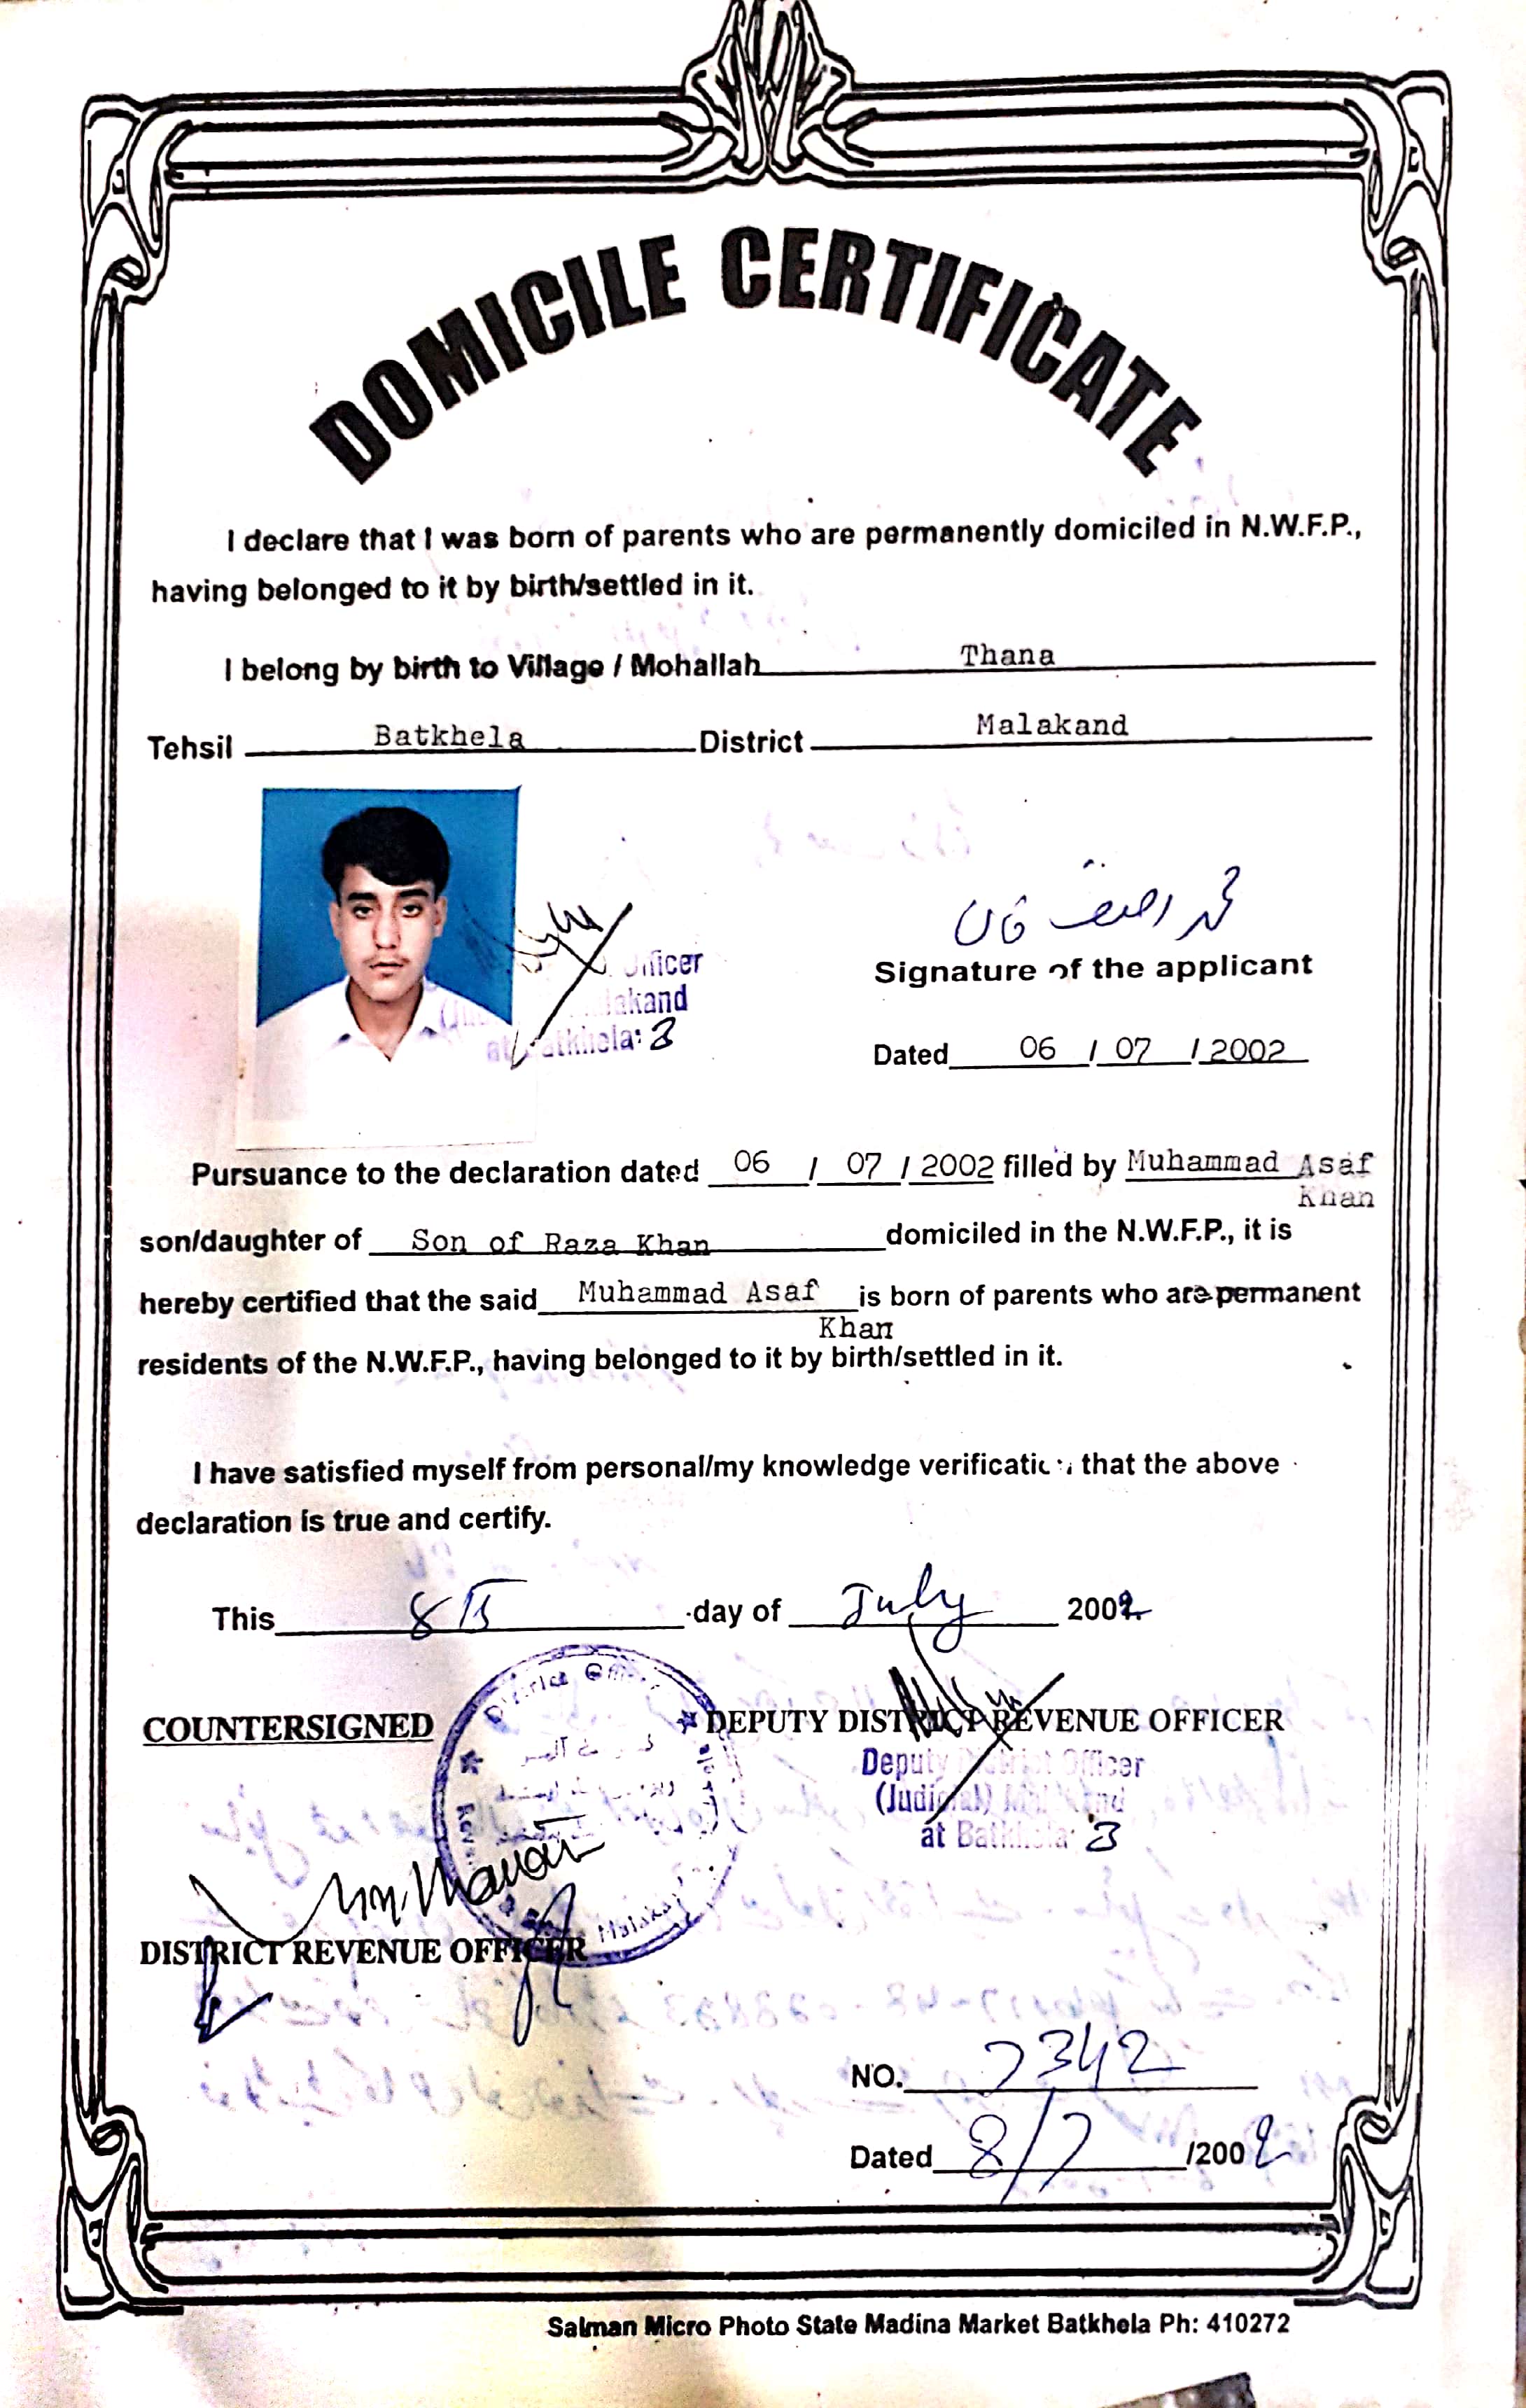 DOMICILE CERTIFICATE
I declare that I was born of parents who are permanently domiciled in N.W.F.P.,
having belonged to it by birth/settled in it.
I belong by birth to Village / Mohallah Thana
Tehsil Batkhela District Malakand
Officer
at Batkhela:
محمد اصف خان
Signature of the applicant
Dated 06 / 07 / 2002
Pursuance to the declaration dated 06 / 07 / 2002 filled by Muhammad Asaf
Khan
son/daughter of Son of Raza Khan domiciled in the N.W.F.P., it is
hereby certified that the said Muhammad Asaf is born of parents who are permanent
Khan
residents of the N.W.F.P., having belonged to it by birth/settled in it.
I have satisfied myself from personal/my knowledge verification that the above
declaration is true and certify.
This 8th day of July 2002
COUNTERSIGNED
DEPUTY DISTRICT REVENUE OFFICER
Deputy District Officer
(Judicial) Malakand
at Batkhela
District Officer
Malakand
DISTRICT REVENUE OFFICER
NO. 7342
Dated 8/7 /2002
Salman Micro Photo State Madina Market Batkhela Ph: 410272